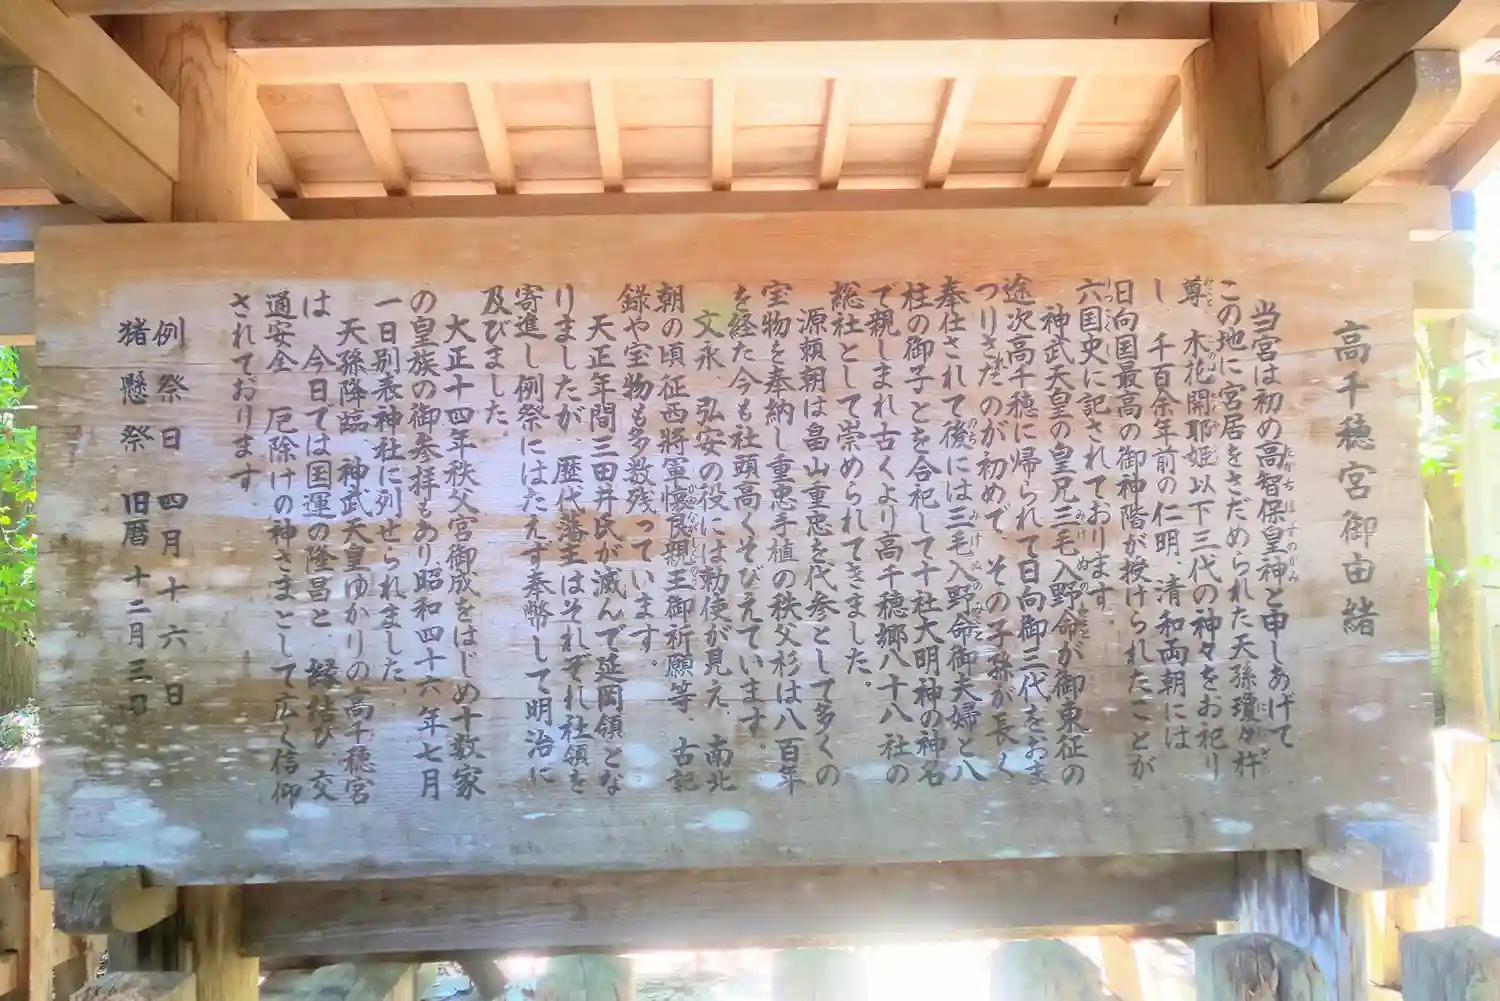 高千穂宮御由緒
当宮は初めの高智保皇神と申しあげて
この地に宮居をさだめられた天孫瓊々杵
尊 木花開耶姫以下三代の神々をお祀り
し 千百余年前の仁明、清和両朝には
日向国最高の御神階が授けられたことが
六国史に記されております。
神武天皇の皇兄三毛入野命が御東征の
途次高千穂に帰られて日向御三代をおま
つりされたのが初めで、その子孫が長く
奉仕されて後には三毛入野命御夫婦と八
柱の御子とを合祀して十社大明神の神名
で親しまれ古くより高千穂郷八十八社の
総社として崇められてきました。
源頼朝は畠山重忠を代参として多くの
宝物を奉納し重忠手植の秩父杉は八百年
を経た今も社頭高くそびえています。
文永、弘安の役には勅使が見え、南北
朝の頃征西将軍懐良親王御祈願等、古記
録や宝物も多数残っています。
天正年間三田井氏が滅んで延岡領とな
りましたが、歴代藩主はそれぞれ社領を
寄進し例祭にはたえず奉幣して明治に
及びました。
大正十四年秩父宮御成をはじめ十数家
の皇族の御参拝もあり、昭和四十六年七月
一日別表神社に列せられました。
天孫降臨、神武天皇ゆかりの高千穂宮
は 今日では国運の隆昌と、縁結び 交
通安全 厄除けの神さまとして広く信仰
されております
例祭日 四月十六日
猪懸祭 旧暦十二月三日